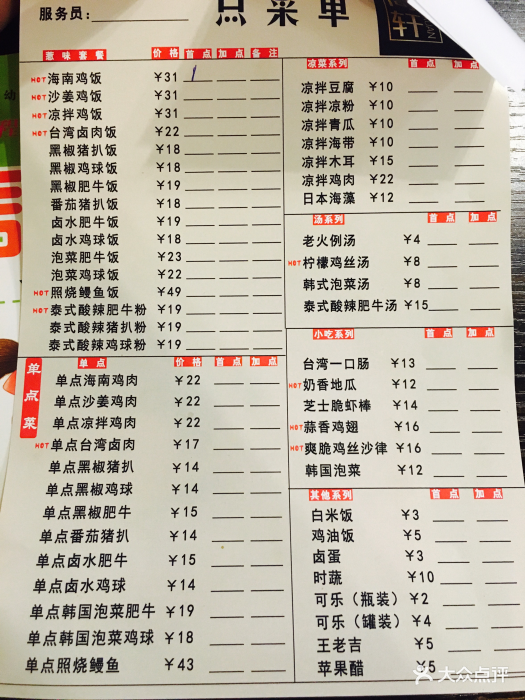 服务员：
点菜单
轩
惹味套餐 价格 首点 加点 备注
HOT 海南鸡饭 ¥31 1
HOT 沙姜鸡饭 ¥31
HOT 凉拌鸡饭 ¥31
HOT 台湾卤肉饭 ¥22
黑椒猪扒饭 ¥18
黑椒鸡球饭 ¥18
黑椒肥牛饭 ¥19
番茄猪扒饭 ¥18
卤水肥牛饭 ¥19
卤水鸡球饭 ¥18
泡菜肥牛饭 ¥23
泡菜鸡球饭 ¥22
HOT 照烧鳗鱼饭 ¥49
HOT 泰式酸辣肥牛粉 ¥19
泰式酸辣猪扒粉 ¥19
泰式酸辣鸡球粉 ¥19
单点菜
单点 价格 首点 加点
单点海南鸡肉 ¥22
单点沙姜鸡肉 ¥22
单点凉拌鸡肉 ¥22
HOT 单点台湾卤肉 ¥17
单点黑椒猪扒 ¥14
单点黑椒鸡球 ¥14
单点黑椒肥牛 ¥15
单点番茄猪扒 ¥14
单点卤水肥牛 ¥15
单点卤水鸡球 ¥14
单点韩国泡菜肥牛 ¥19
单点韩国泡菜鸡球 ¥18
单点照烧鳗鱼 ¥43
凉菜系列 首点 加点
凉拌豆腐 ¥10
凉拌凉粉 ¥10
凉拌青瓜 ¥10
凉拌海带 ¥10
凉拌木耳 ¥15
凉拌鸡肉 ¥22
日本海藻 ¥12
汤系列 首点 加点
老火例汤 ¥4
HOT 柠檬鸡丝汤 ¥8
韩式泡菜汤 ¥8
泰式酸辣肥牛汤 ¥15
小吃系列 首点 加点
台湾一口肠 ¥13
HOT 奶香地瓜 ¥12
芝士脆虾棒 ¥14
HOT 蒜香鸡翅 ¥16
HOT 爽脆鸡丝沙律 ¥16
韩国泡菜 ¥12
其他系列 首点 加点
白米饭 ¥3
鸡油饭 ¥5
卤蛋 ¥3
时蔬 ¥10
可乐（瓶装） ¥2
可乐（罐装） ¥4
王老吉 ¥5
苹果醋 ¥5
大众点评